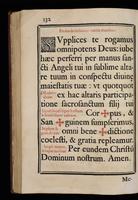 132
SVpplices te rogamus
omnipotens Deus: iube
hæc perferri per manus san-
cti Angeli tui in sublime alta-
re tuum in conspectu diuinę
maiestatis tuæ: vt quotquot
ex hac altaris participa-
tione sacrosanctum filij tui
Cor✠pus, &
San✠guinem sumpserimus,
omni bene✠dictione
coelesti, & gratia repleamur.
Per eundem Christum
Dominum nostrum. Amen.
Me-